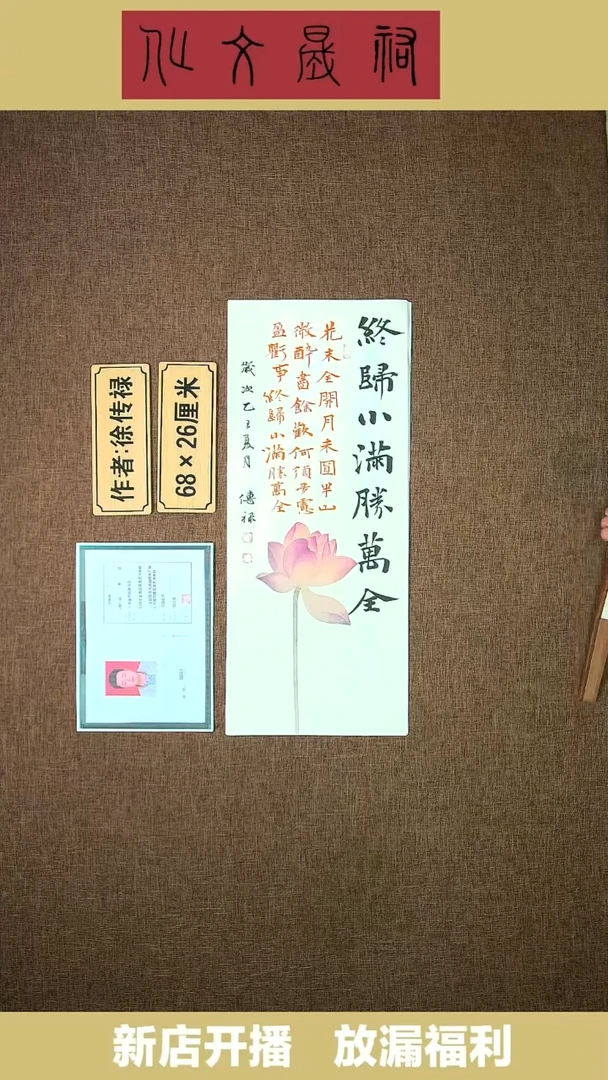 終歸小滿勝萬全
花未全開月未圓半山
微醉盡餘歡何須多慮
盈虧事終歸小滿勝萬全
歲次乙巳夏月 傳祿
作者:徐传禄
68×26厘米
新店开播 放漏福利